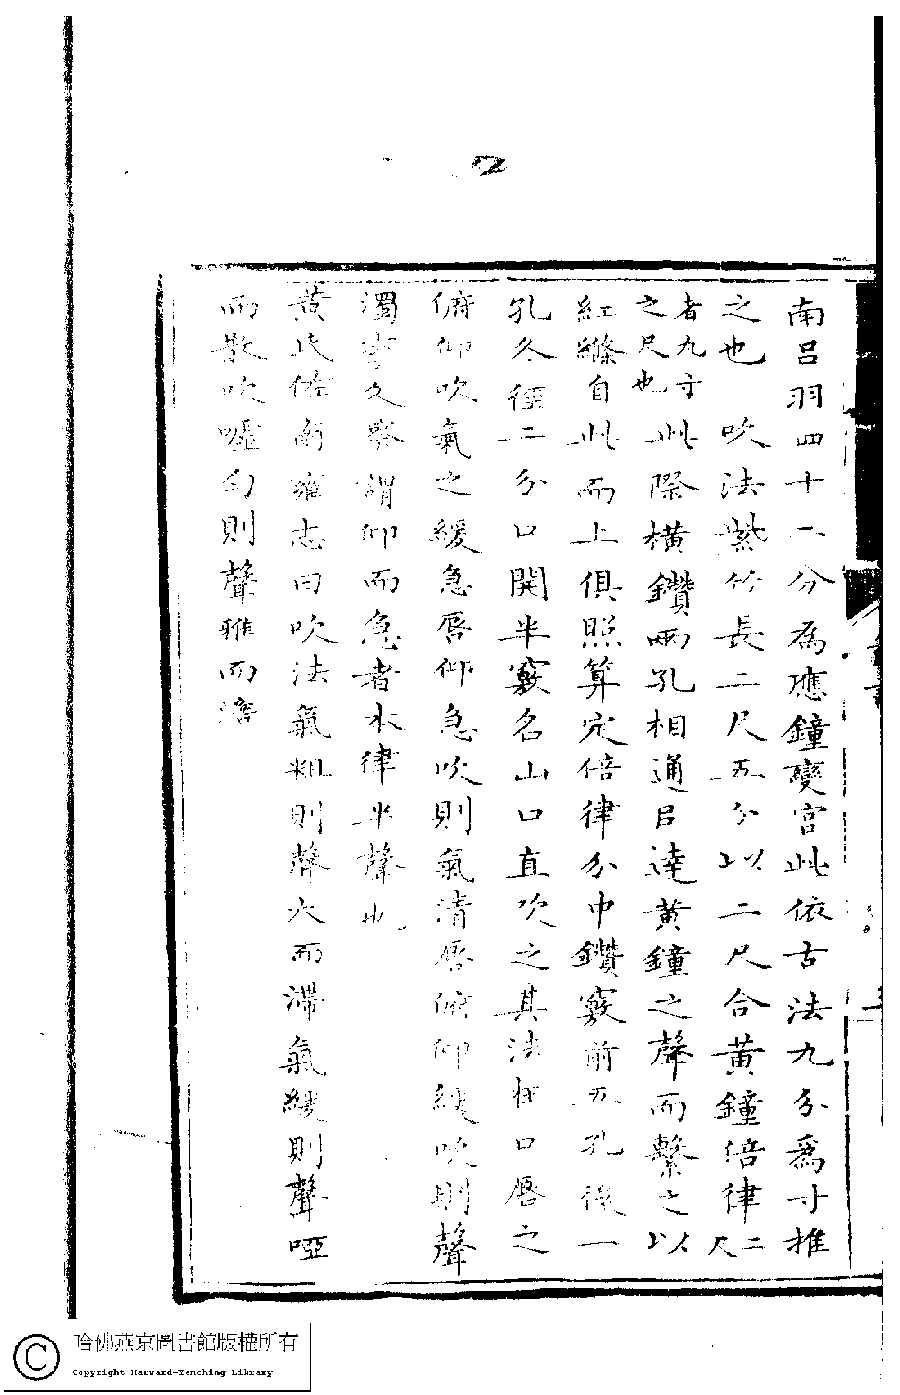 南呂羽四十二分為應鐘變宮此依古法九分為寸推
之也 吹法紫竹長二尺五分以二尺合黃鐘倍律二尺
者九寸之尺也此際橫鑽兩孔相通以達黃鐘之聲而繫之以
紅縧自此而上俱照算定倍律分中鑽竅前五孔後一
孔久徑二分口開半竅名山口直吹之其法在口唇之
俯仰吹氣之緩急唇仰急吹則氣清唇俯仰緩吹則聲
濁 久 謂仰而急者本律半聲也
黃氏佐南雍志曰吹法氣粗則聲大而滯氣緩則聲啞
而散吹噓勻則聲雅而
哈佛燕京圖書館版權所有
Copyright Harvard-Yenching Library